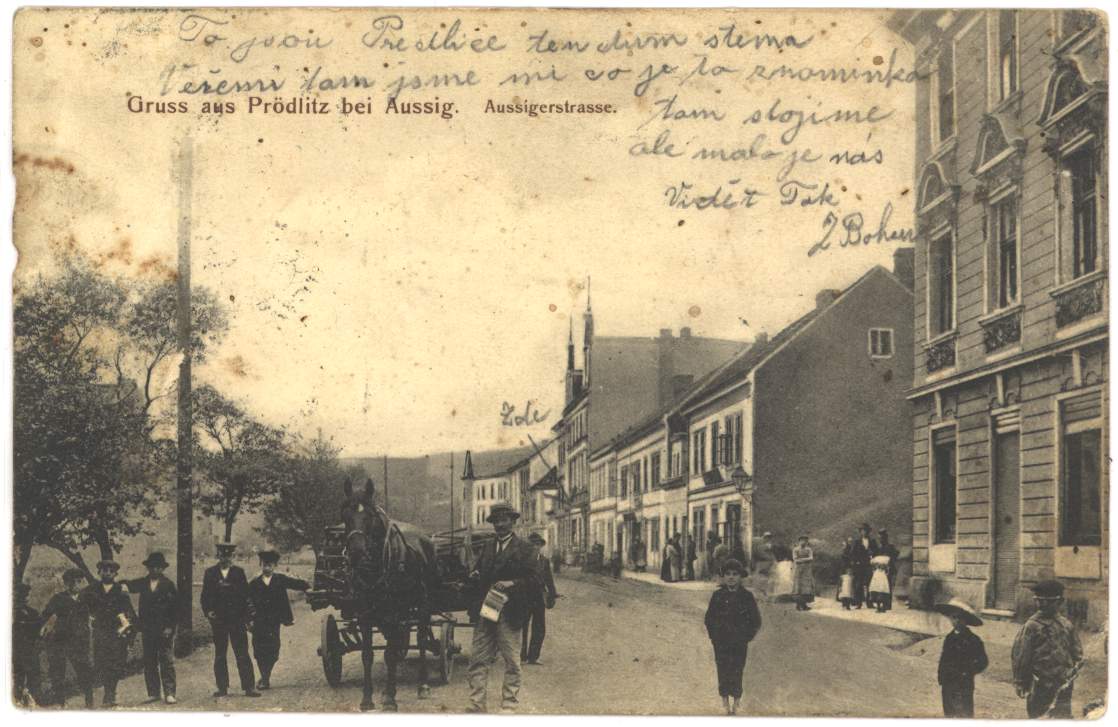 To jsou Předlice ten dum stema
Veřemi tam jsme mi co je to znominka
Gruss aus Prödlitz bei Aussig. Aussigerstrasse.
tam stojime
ale malo je nás
Viđět Tak
Z Bohem
Zde